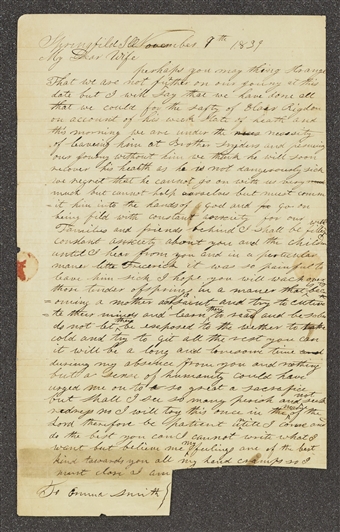 Springfield Ill November 9th 1839
My Dear Wife
perhaps you may think strange
That we are not further on our journy at this
date but I will say that we have done all
that we could for the safty of Elder Rigdon
on account of his weak state of health and
this morning we are under the necessity
of leaveing him at Brother Snyders and
our journy without him we think he will soon
recover his health as he is not dangerously sick
we regret that he cannot go on with us very
much but cannot help ourselves but must commit
it him into the hands of God and go on
being filled with constant anxiety for our
Families and friends behind I shall be filled with
constant anxiety about you and the children
until I hear from you and in a perticular
maner little Fredrick it was so painful to
leave him sick I hope you will wach over
those tender ofsprings in a manner that is
=oming a mother and a saint and try to cultiva
=te their minds and learn them to read and be sober
do not let them be exposed to the wether to take
cold and try to get all the rest you can
it will be a long and lonesome time
dureing my absence from you and nothing
but a sense of humanity could have
urged me on to so great a sacrafice
but shall I see so many perish and not seek
redress no I will try this once in the name of the
Lord therefore be patient until I come and
do the best you can I cannot write what I
want but believe me my feelings are of the best
kind towards you all my hand cramps so I
must close I am
To Emma Smith